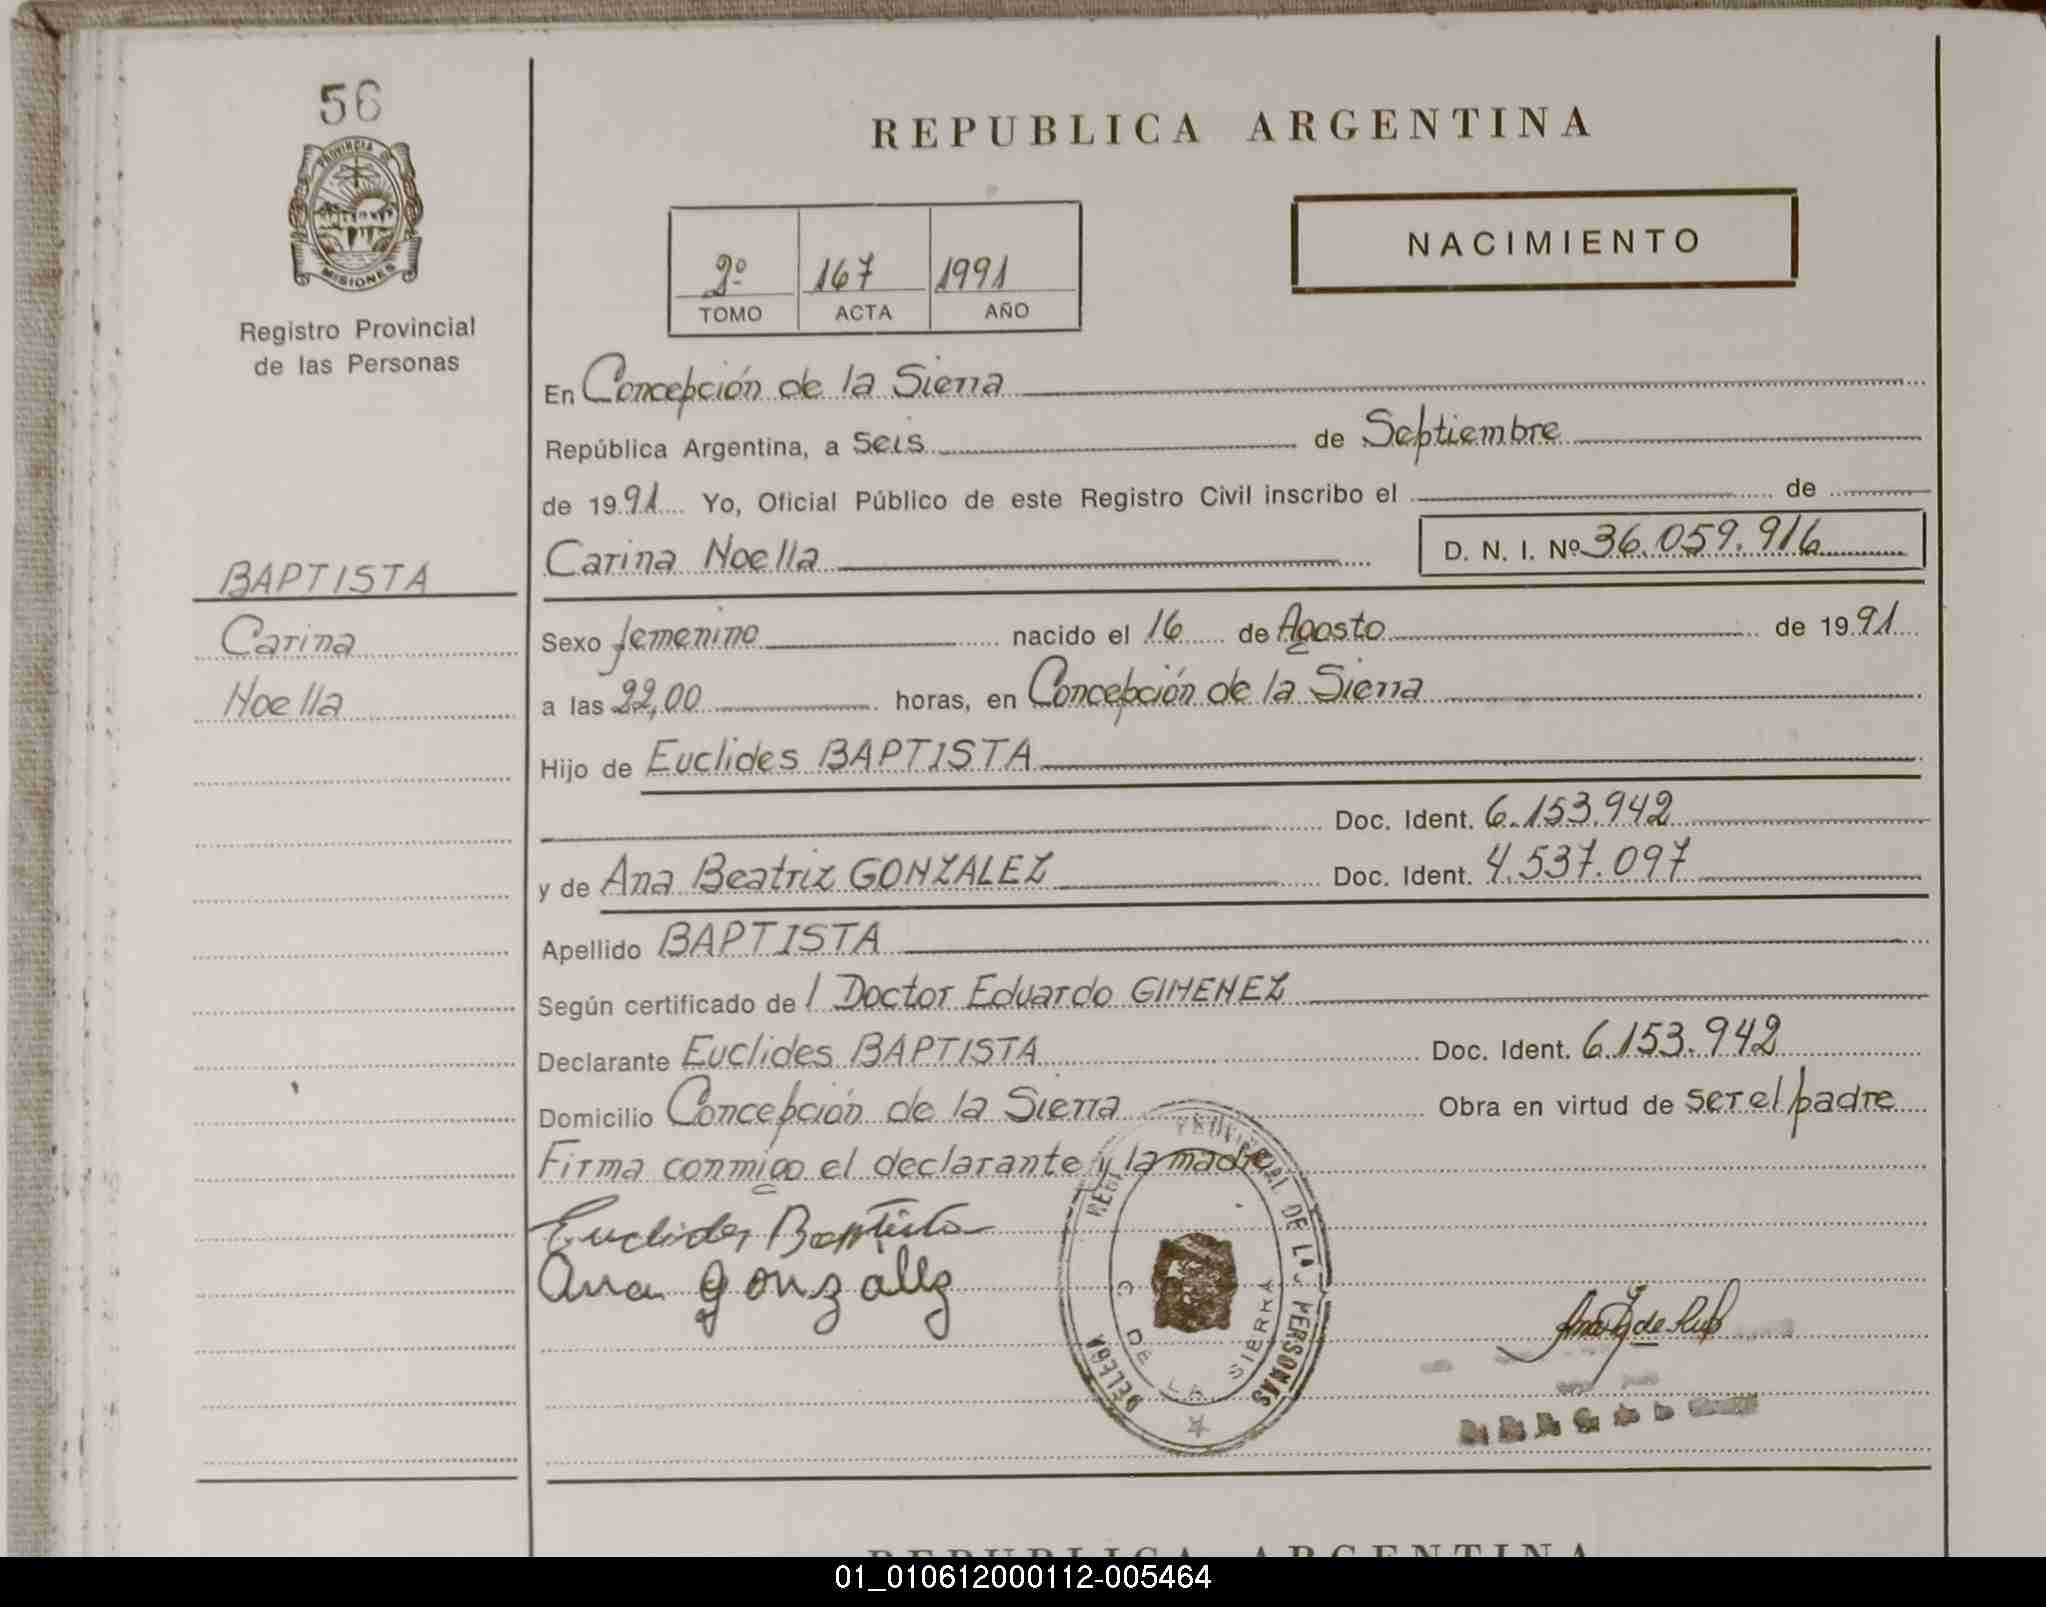 56
PROVINCIA DE
MISIONES
Registro Provincial
de las Personas
REPUBLICA ARGENTINA
2º 167 1991
TOMO ACTA AÑO
NACIMIENTO
En Concepción de la Sierra
República Argentina, a Seis de Septiembre
de 1991 Yo, Oficial Público de este Registro Civil inscribo el de
Carina Noelia D. N. I. Nº 36.059.916
BAPTISTA
Carina
Noelia
Sexo femenino nacido el 16 de Agosto de 1991
a las 22,00 horas, en Concepción de la Sierra
Hijo de Euclides BAPTISTA
Doc. Ident. 6.153.942
y de Ana Beatriz GONZALEZ Doc. Ident. 4.537.097
Apellido BAPTISTA
Según certificado del Doctor Eduardo GIMENEZ
Declarante Euclides BAPTISTA Doc. Ident. 6.153.942
Domicilio Concepción de la Sierra Obra en virtud de ser el padre
Firma conmigo el declarante y la madre
Euclides Baptista
Ana gonzalez
DE LAS PERSONAS
C DE LA SIERRA
REPUBLICA ARGENTINA
01_010612000112-005464